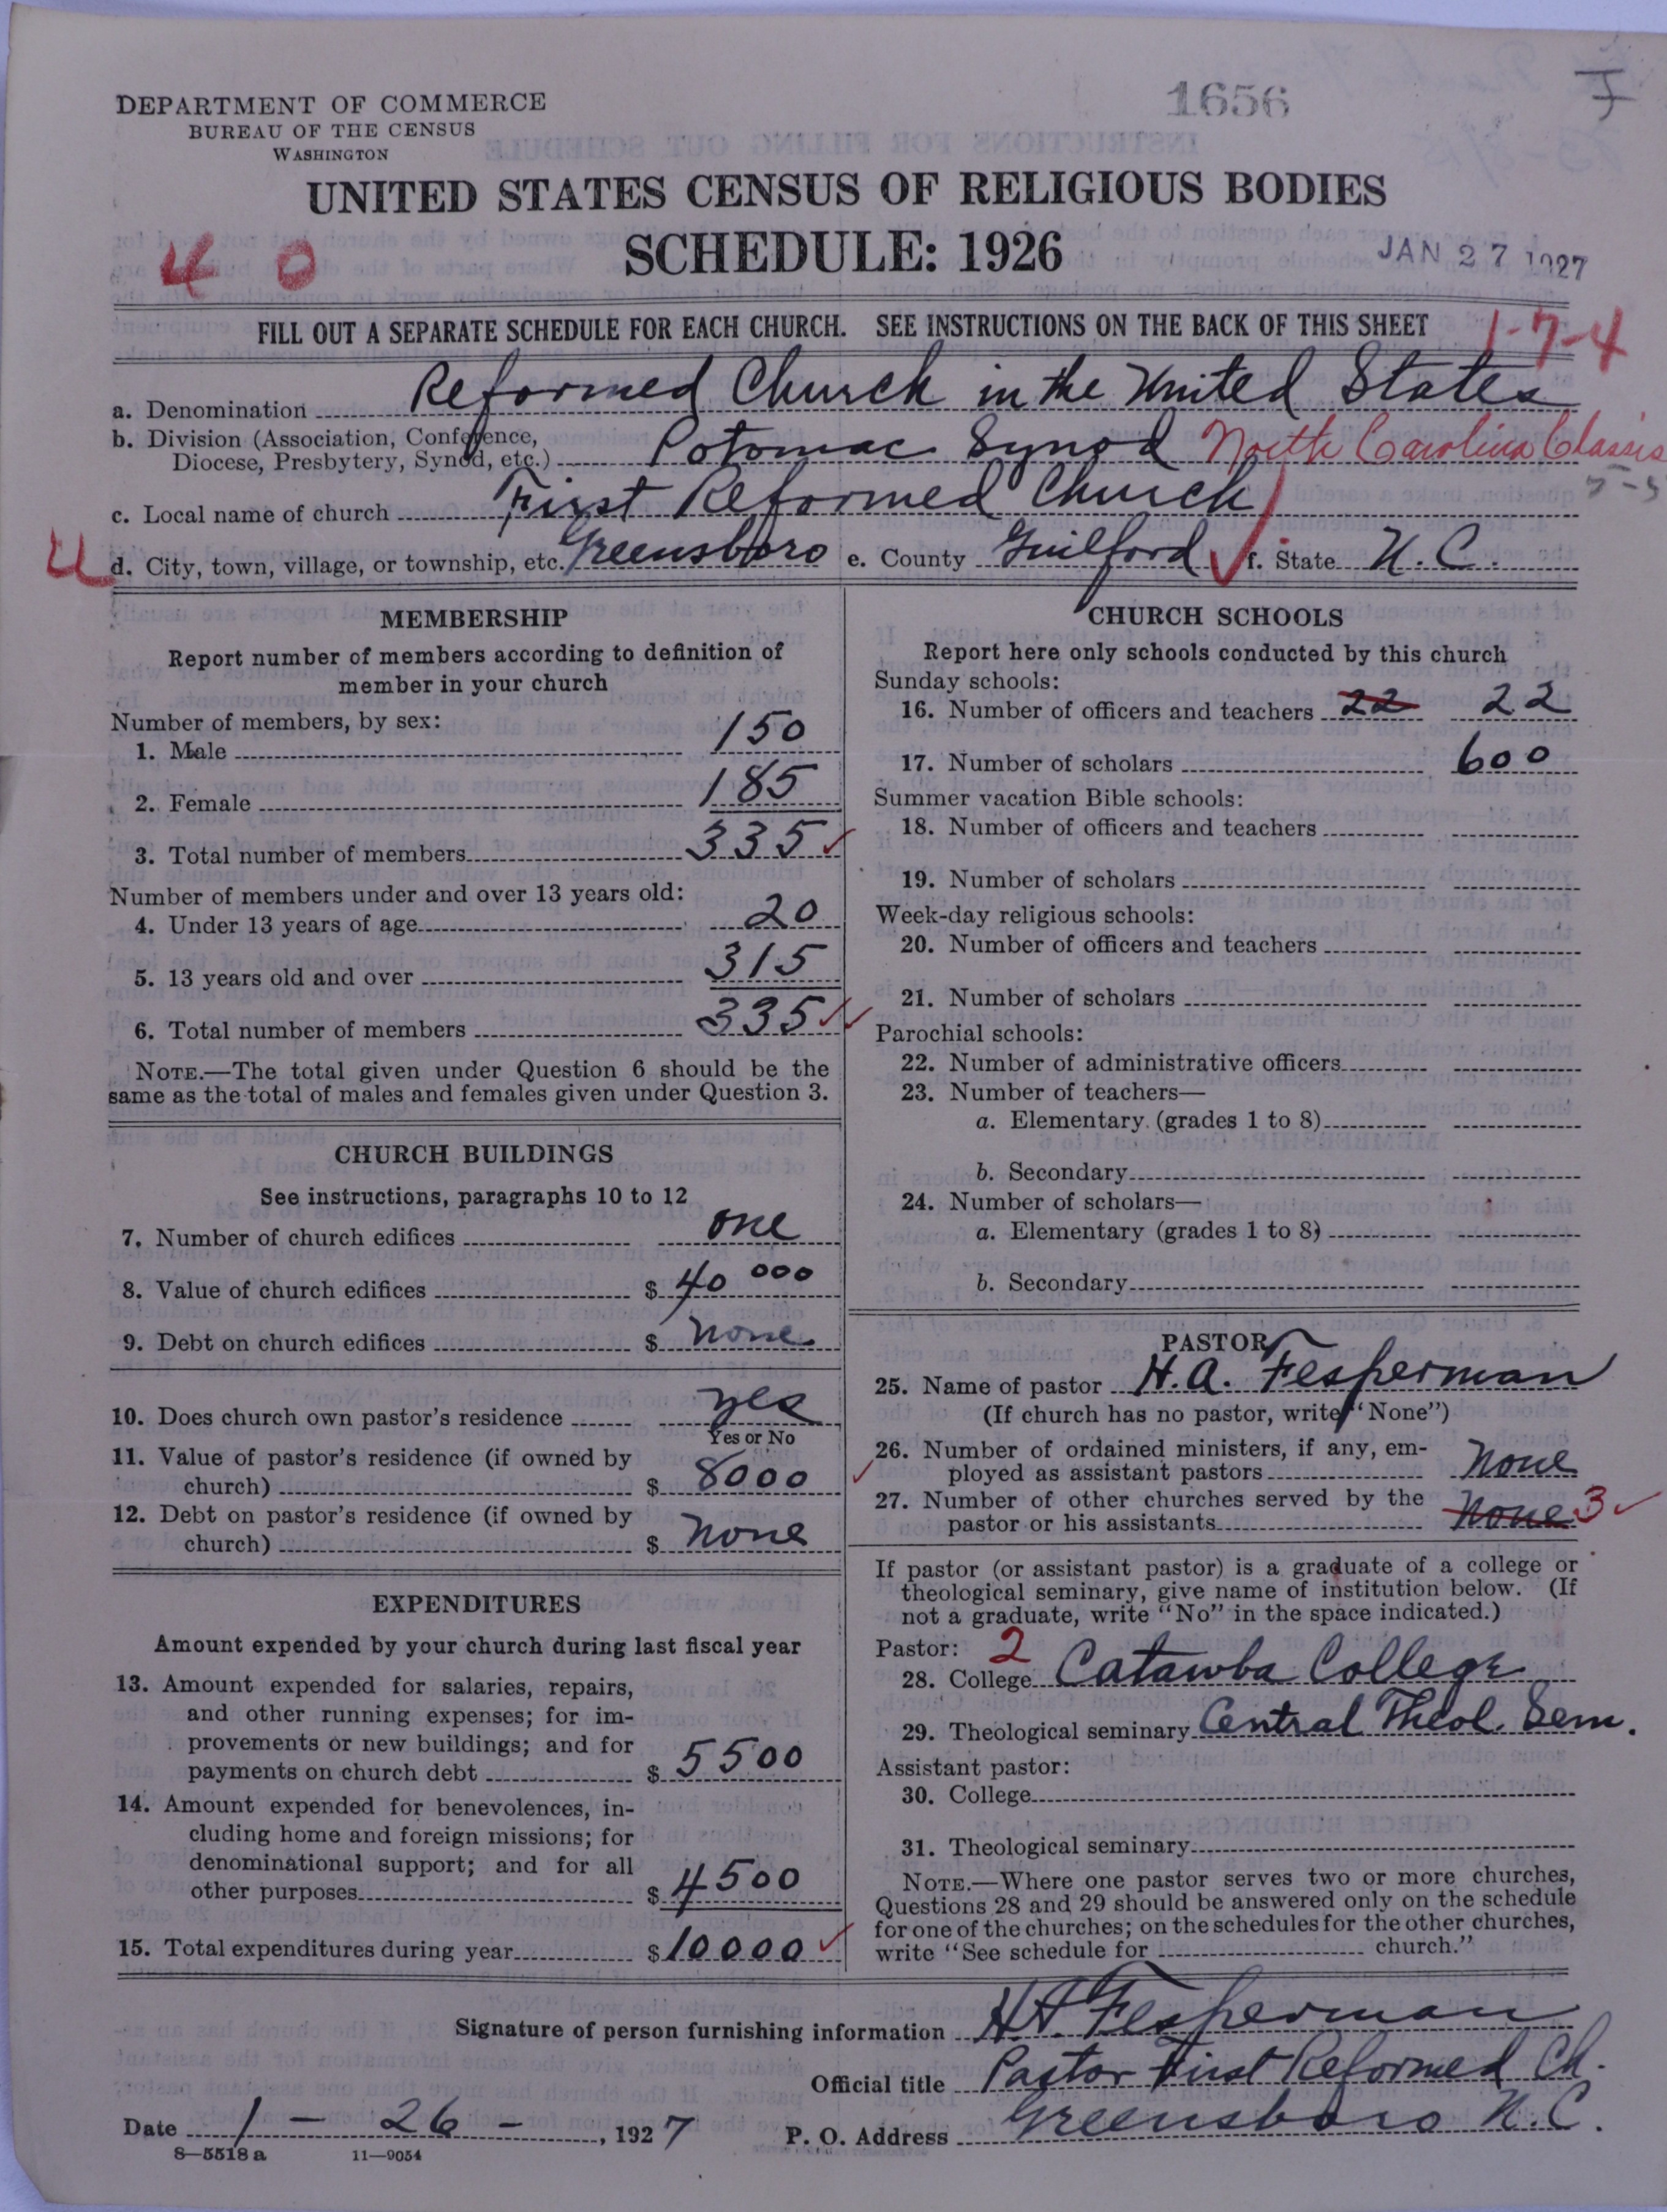 1656
DEPARTMENT OF COMMERCE
BUREAU OF THE CENSUS
WASHINGTON
UNITED STATES CENSUS OF RELIGIOUS BODIES
SCHEDULE: 1926
JAN 27 1927
40
FILL OUT A SEPARATE SCHEDULE FOR EACH CHURCH. SEE INSTRUCTIONS ON THE BACK OF THIS SHEET
1-7-4
a. Denomination Reformed Church in the United States
b. Division (Association, Conference,
Diocese, Presbytery, Synod, etc.) Potomac Synod North Carolina Classis
c. Local name of church First Reformed Church
d. City, town, village, or township, etc. Greensboro e. County Guilford f. State N. C.
MEMBERSHIP
Report number of members according to definition of
member in your church
Number of members, by sex:
1. Male 150
2. Female 185
3. Total number of members 335 ✓
Number of members under and over 13 years old:
4. Under 13 years of age 20
5. 13 years old and over 315
6. Total number of members 335 ✓✓
NOTE.—The total given under Question 6 should be the
same as the total of males and females given under Question 3.
CHURCH BUILDINGS
See instructions, paragraphs 10 to 12
7. Number of church edifices one
8. Value of church edifices $ 40 000
9. Debt on church edifices $ none
10. Does church own pastor's residence yes
Yes or No
11. Value of pastor's residence (if owned by
church) $ 8000
12. Debt on pastor's residence (if owned by
church) $ none
EXPENDITURES
Amount expended by your church during last fiscal year
13. Amount expended for salaries, repairs,
and other running expenses; for im-
provements or new buildings; and for
payments on church debt $ 5500
14. Amount expended for benevolences, in-
cluding home and foreign missions; for
denominational support; and for all
other purposes $ 4500
15. Total expenditures during year $ 10000 ✓
CHURCH SCHOOLS
Report here only schools conducted by this church
Sunday schools:
16. Number of officers and teachers 22 22
17. Number of scholars 600
Summer vacation Bible schools:
18. Number of officers and teachers
19. Number of scholars
Week-day religious schools:
20. Number of officers and teachers
21. Number of scholars
Parochial schools:
22. Number of administrative officers
23. Number of teachers—
a. Elementary (grades 1 to 8)
b. Secondary
24. Number of scholars—
a. Elementary (grades 1 to 8)
b. Secondary
PASTOR
25. Name of pastor H. A. Fesperman
(If church has no pastor, write "None")
26. Number of ordained ministers, if any, em-
ployed as assistant pastors None
27. Number of other churches served by the
pastor or his assistants None 3 ✓
If pastor (or assistant pastor) is a graduate of a college or
theological seminary, give name of institution below. (If
not a graduate, write "No" in the space indicated.)
Pastor: 2
28. College Catawba College
29. Theological seminary Central Theol. Sem.
Assistant pastor:
30. College
31. Theological seminary
NOTE.—Where one pastor serves two or more churches,
Questions 28 and 29 should be answered only on the schedule
for one of the churches; on the schedules for the other churches,
write "See schedule for church."
Signature of person furnishing information H. A. Fesperman
Official title Pastor First Reformed Ch.
Date 1 - 26 - , 1927 P. O. Address Greensboro N. C.
8—5518 a 11—9054